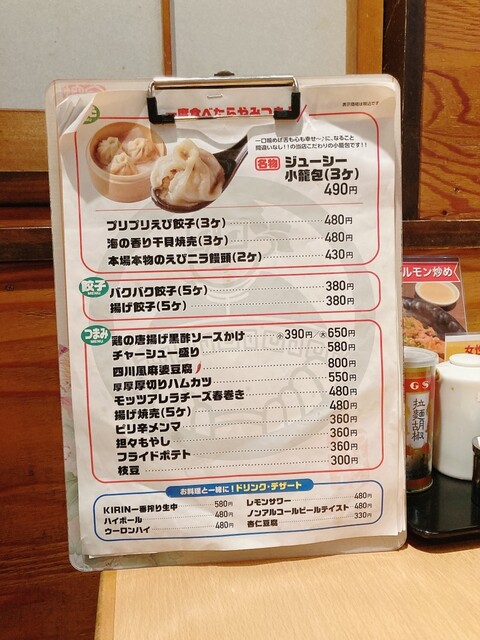 一度食べたらやみつき
表示価格は税込です
一口頬めば舌も心も幸せ〜♪に、なること
間違いなし!!の当店こだわりの小籠包です!!
名物 ジューシー
小籠包(3ヶ)
490円
プリプリえび餃子(3ヶ) 480円
海の香り干貝焼売(3ヶ) 480円
本場本物のえびニラ饅頭(2ヶ) 430円
餃子
MENU
パクパク餃子(5ヶ) 380円
揚げ餃子(5ヶ) 380円
つまみ
MENU
鶏の唐揚げ黒酢ソースかけ 小390円 大650円
チャーシュー盛り 580円
四川風麻婆豆腐 800円
厚厚厚切りハムカツ 550円
モッツアレラチーズ春巻き 480円
揚げ焼売(5ヶ) 480円
ピリ辛メンマ 360円
坦々もやし 360円
フライドポテト 360円
枝豆 300円
お料理と一緒に!ドリンク・デザート
KIRIN一番搾り生中 580円
ハイボール 480円
ウーロンハイ 480円
レモンサワー 480円
ノンアルコールビールテイスト 480円
杏仁豆腐 330円
ルモン炒め
女性
GS
拉麺胡椒